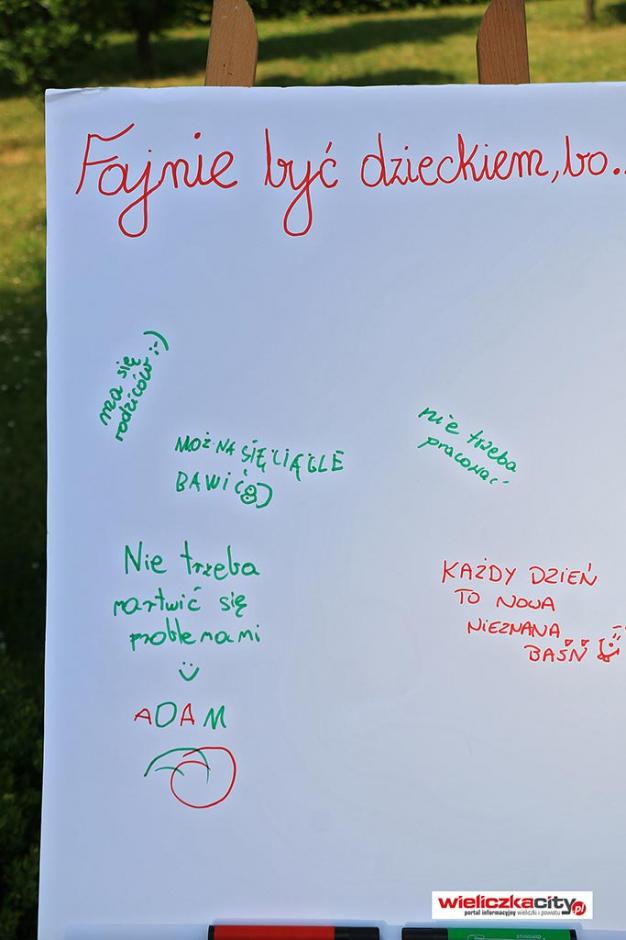 Fajnie być dzieckiem, bo...
ma się
rodziców :-)
MOŻNA SIĘ CIĄGLE
BAWIĆ
nie trzeba
pracować
Nie trzeba
martwić się
problemami
KAŻDY DZIEŃ
TO NOWA
NIEZNANA
BAŚŃ
ADAM
wieliczkacity.pl
portal informacyjny wieliczki i powiatu